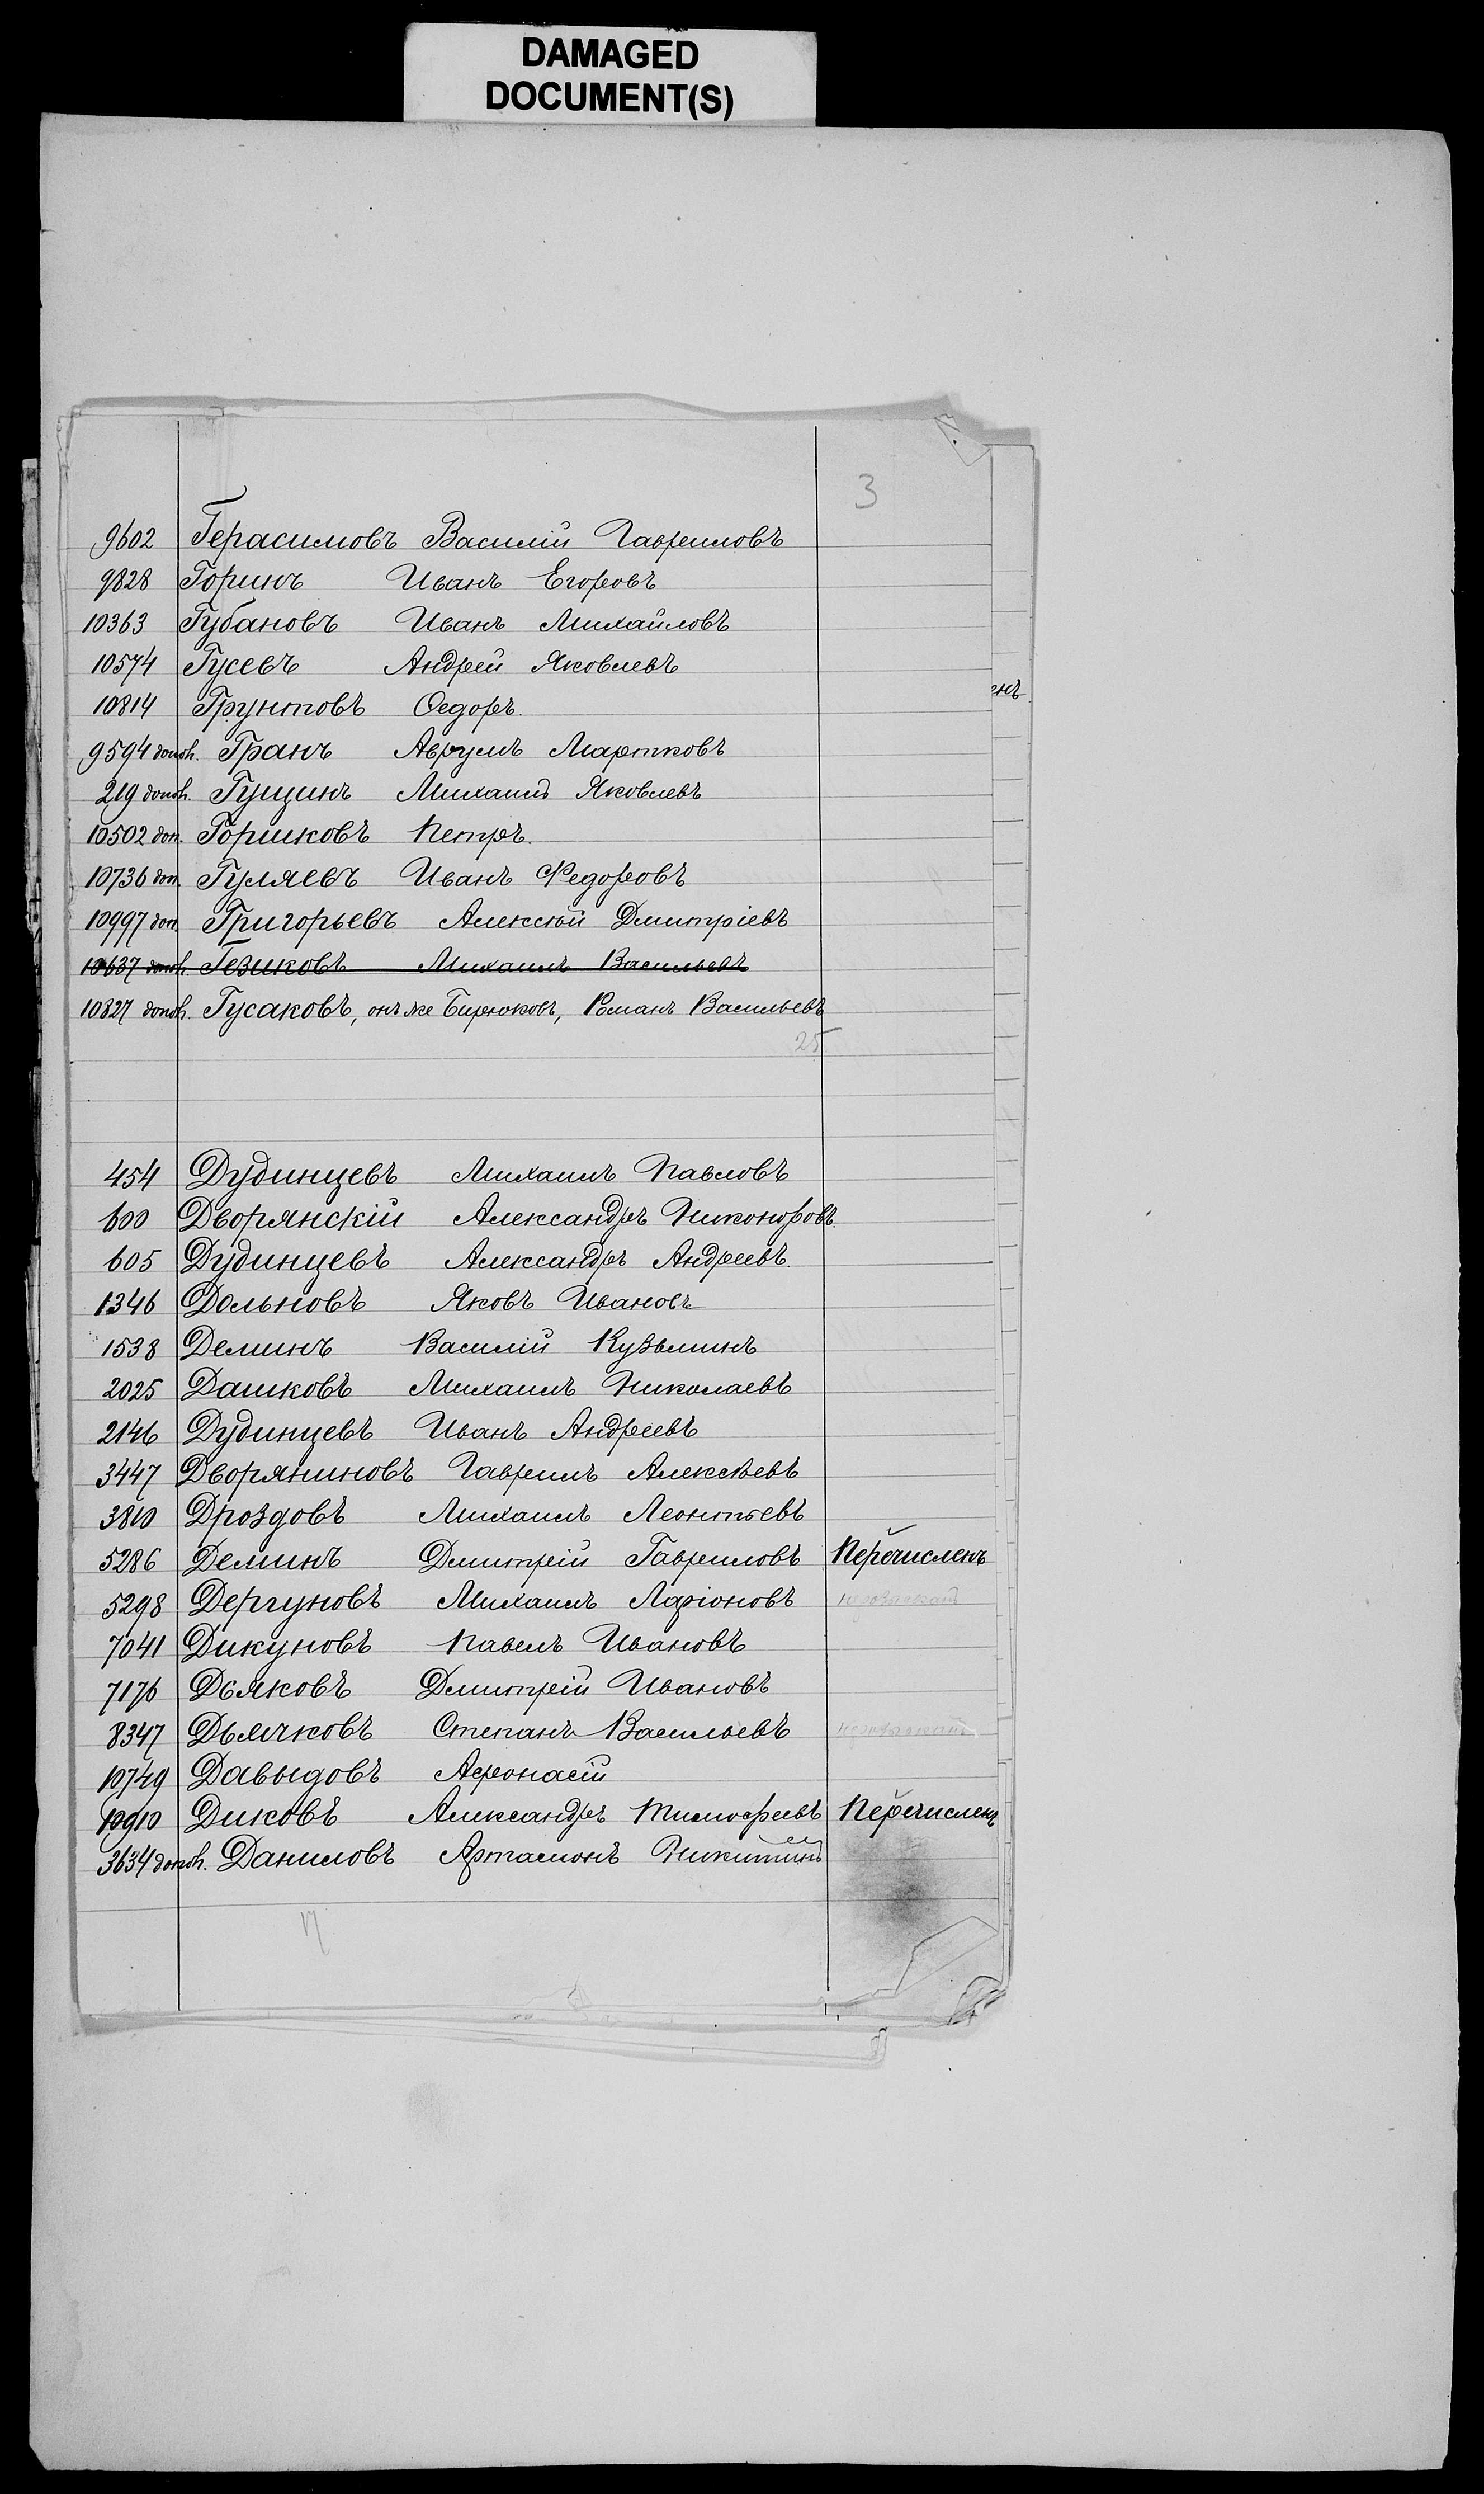 DAMAGED
DOCUMENT(S)
3
9602 Герасимовъ Василій Гавриловъ
9828 Горинъ Иванъ Егоровъ
10363 Губановъ Иванъ Михайловъ
10574 Гусевъ Андрей Яковлевъ
10814 Грунтовъ Ѳедоръ.
енъ
9594 допол. Гранъ Аврумъ Мартковъ
219 допол. Гущинъ Михаилъ Яковлевъ
10502 доп. Горшковъ Петръ.
10736 доп. Гуляевъ Иванъ Федоровъ
10997 доп. Григорьевъ Алексѣй Дмитріевъ
10637 допол. Гезиковъ Михаилъ Васильевъ
10827 допол. Гусаковъ, онъ же Бирюковъ, Романъ Васильевъ
25
454 Дудинцевъ Михаилъ Павловъ
600 Дворянскій Александръ Никоноровъ.
605 Дудинцевъ Александръ Андреевъ.
1346 Дольновъ Яковъ Ивановъ
1538 Деминъ Василій Кузьминъ
2025 Дашковъ Михаилъ Николаевъ
2146 Дудинцевъ Иванъ Андреевъ
3447 Дворяниновъ Гаврилъ Алексѣевъ
3810 Дроздовъ Михаилъ Леонтьевъ
5286 Деминъ Дмитрій Гавриловъ Перечисленъ
5298 Дергуновъ Михаилъ Ларіоновъ
7041 Дикуновъ Павелъ Ивановъ
7176 Дьяковъ Дмитрій Ивановъ
8347 Дьячковъ Степанъ Васильевъ
10749 Давыдовъ Афонасій
10910 Диковъ Александръ Тимофеевъ Перечисленъ
3634 допол. Даниловъ Артамонъ Никитинъ
17